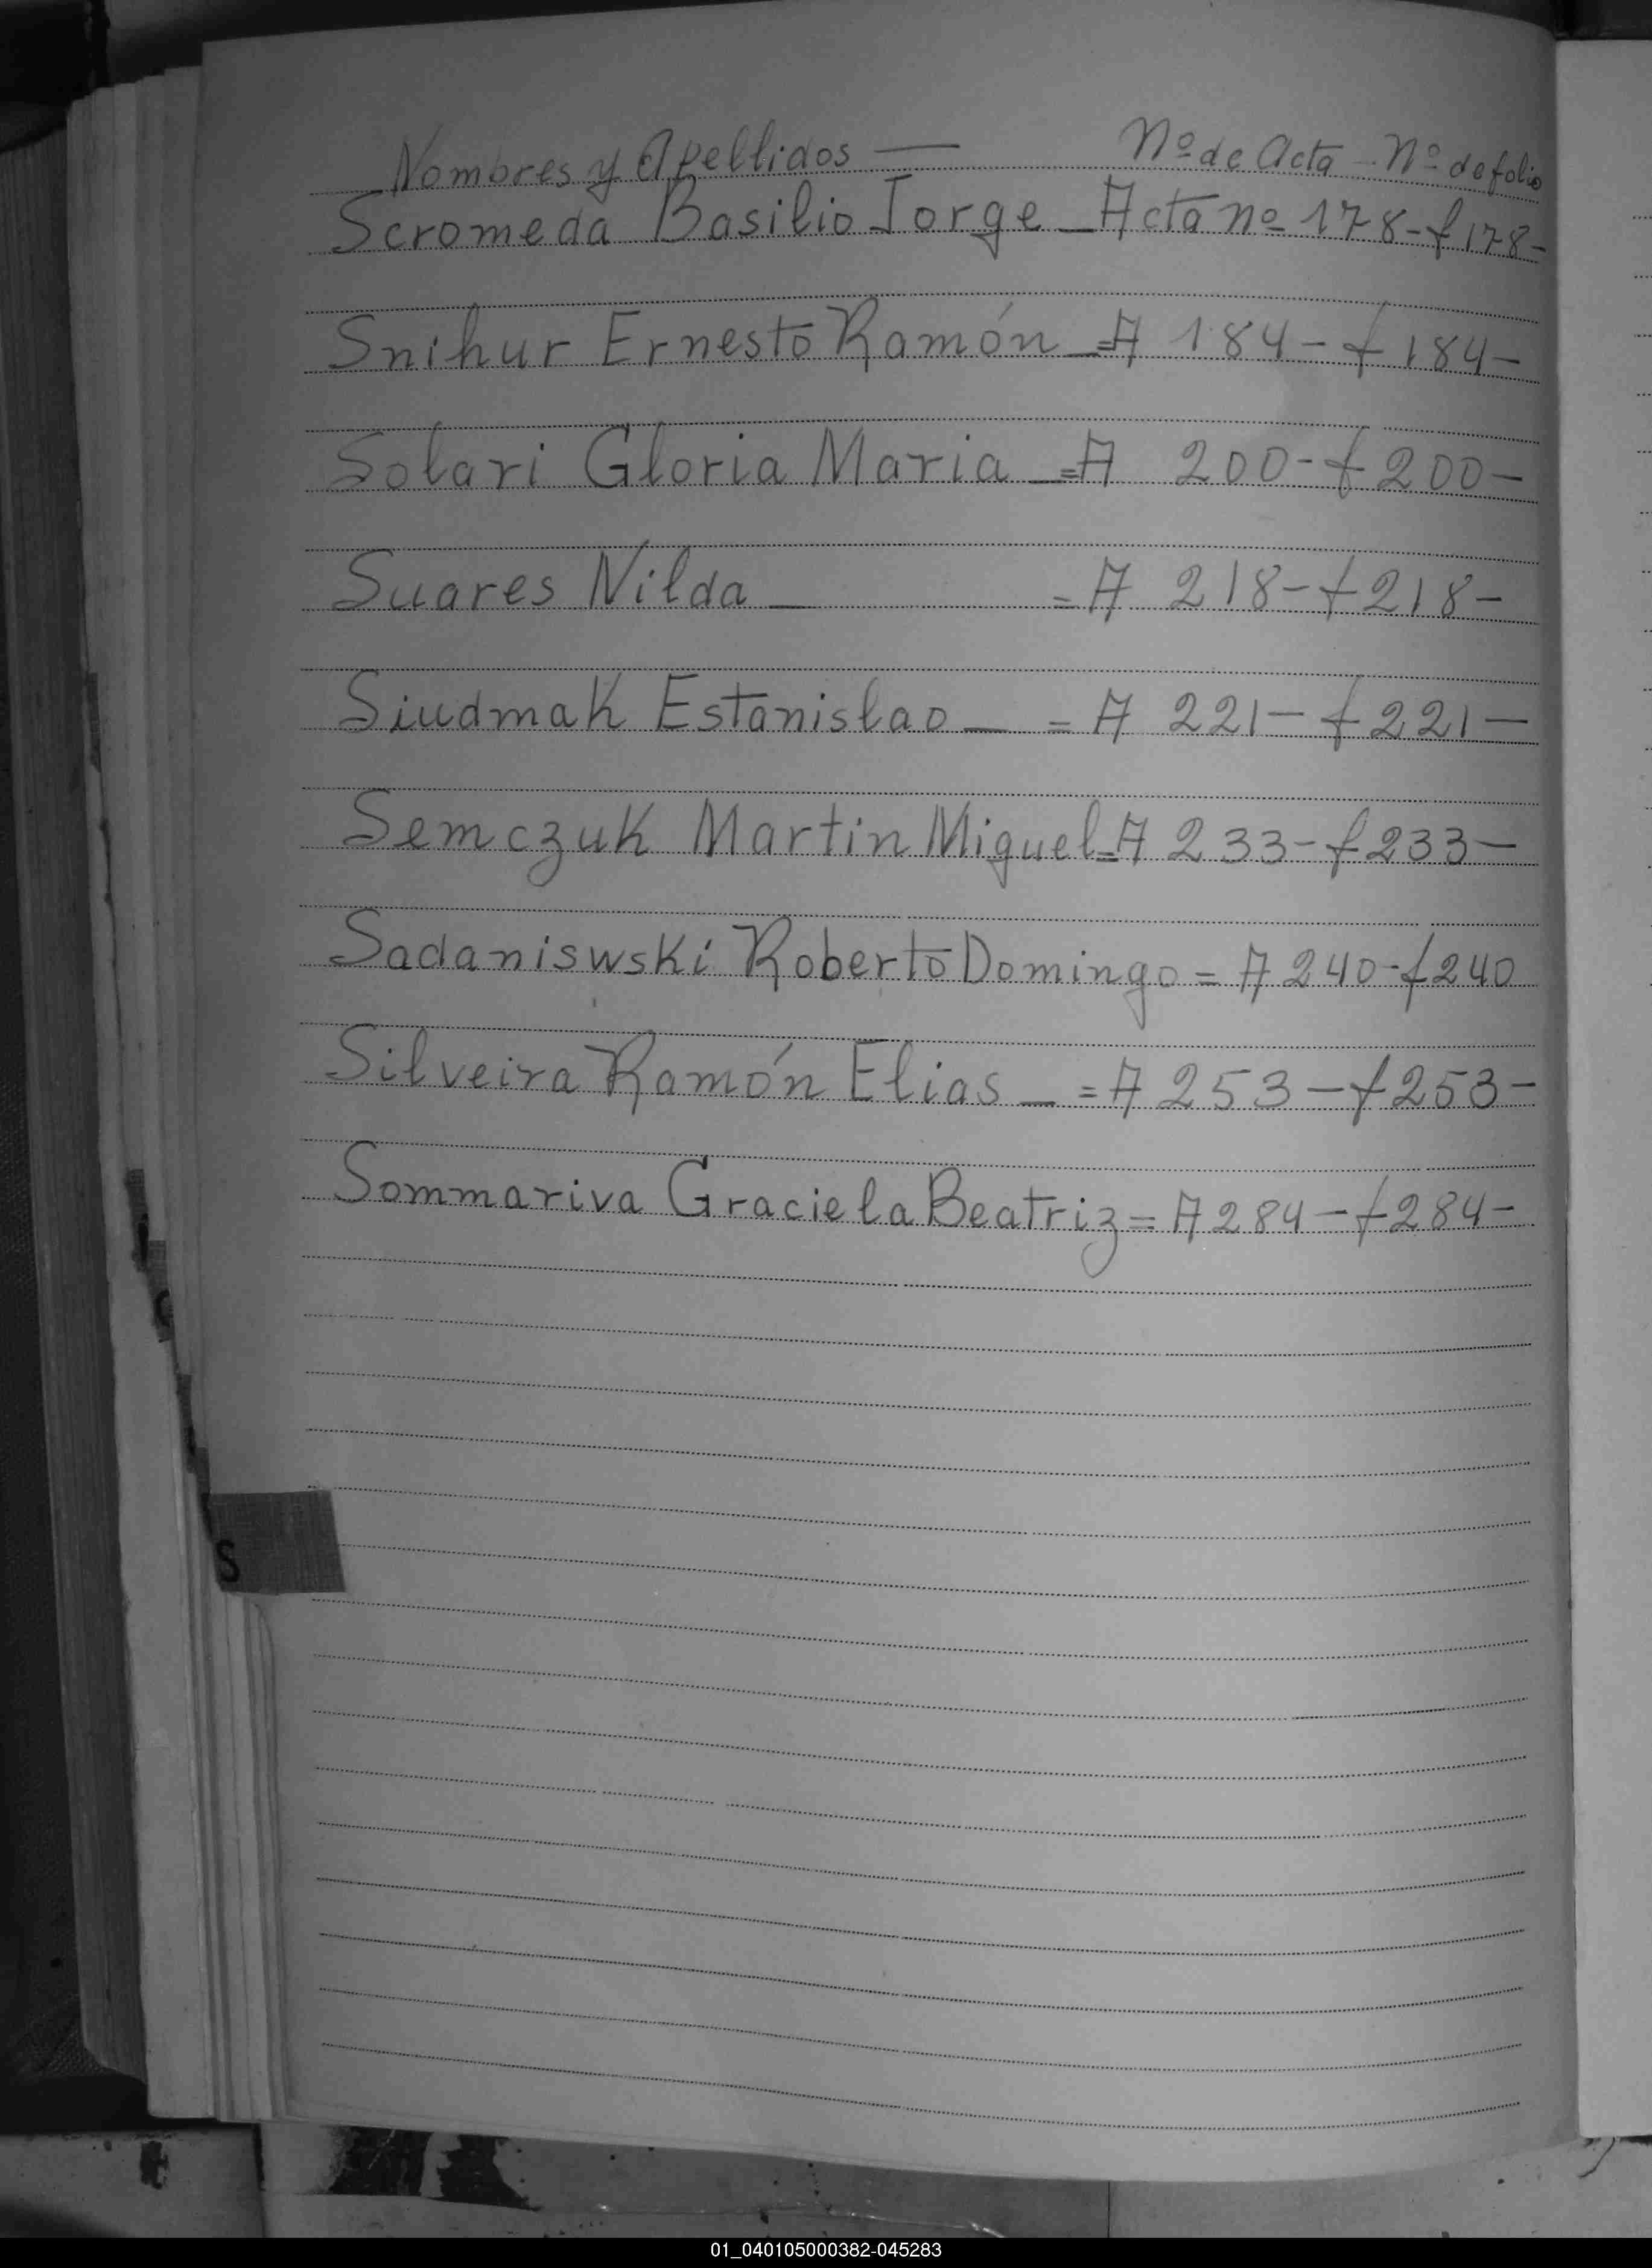 Nombres y Apellidos — Nº de Acta - Nº de folio
Scromeda Basilio Jorge - Acta nº 178 - f 178 -
Snihur Ernesto Ramón - = A 184 - f 184 -
Solari Gloria Maria - = A 200 - f 200 -
Suares Nilda - = A 218 - f 218 -
Siudmak Estanislao - = A 221 - f 221 -
Semczuk Martin Miguel = A 233 - f 233 -
Sadaniswski Roberto Domingo = A 240 - f 240
Silveira Ramón Elias - = A 253 - f 253 -
Sommariva Graciela Beatriz = A 284 - f 284 -
S
01_040105000382-045283